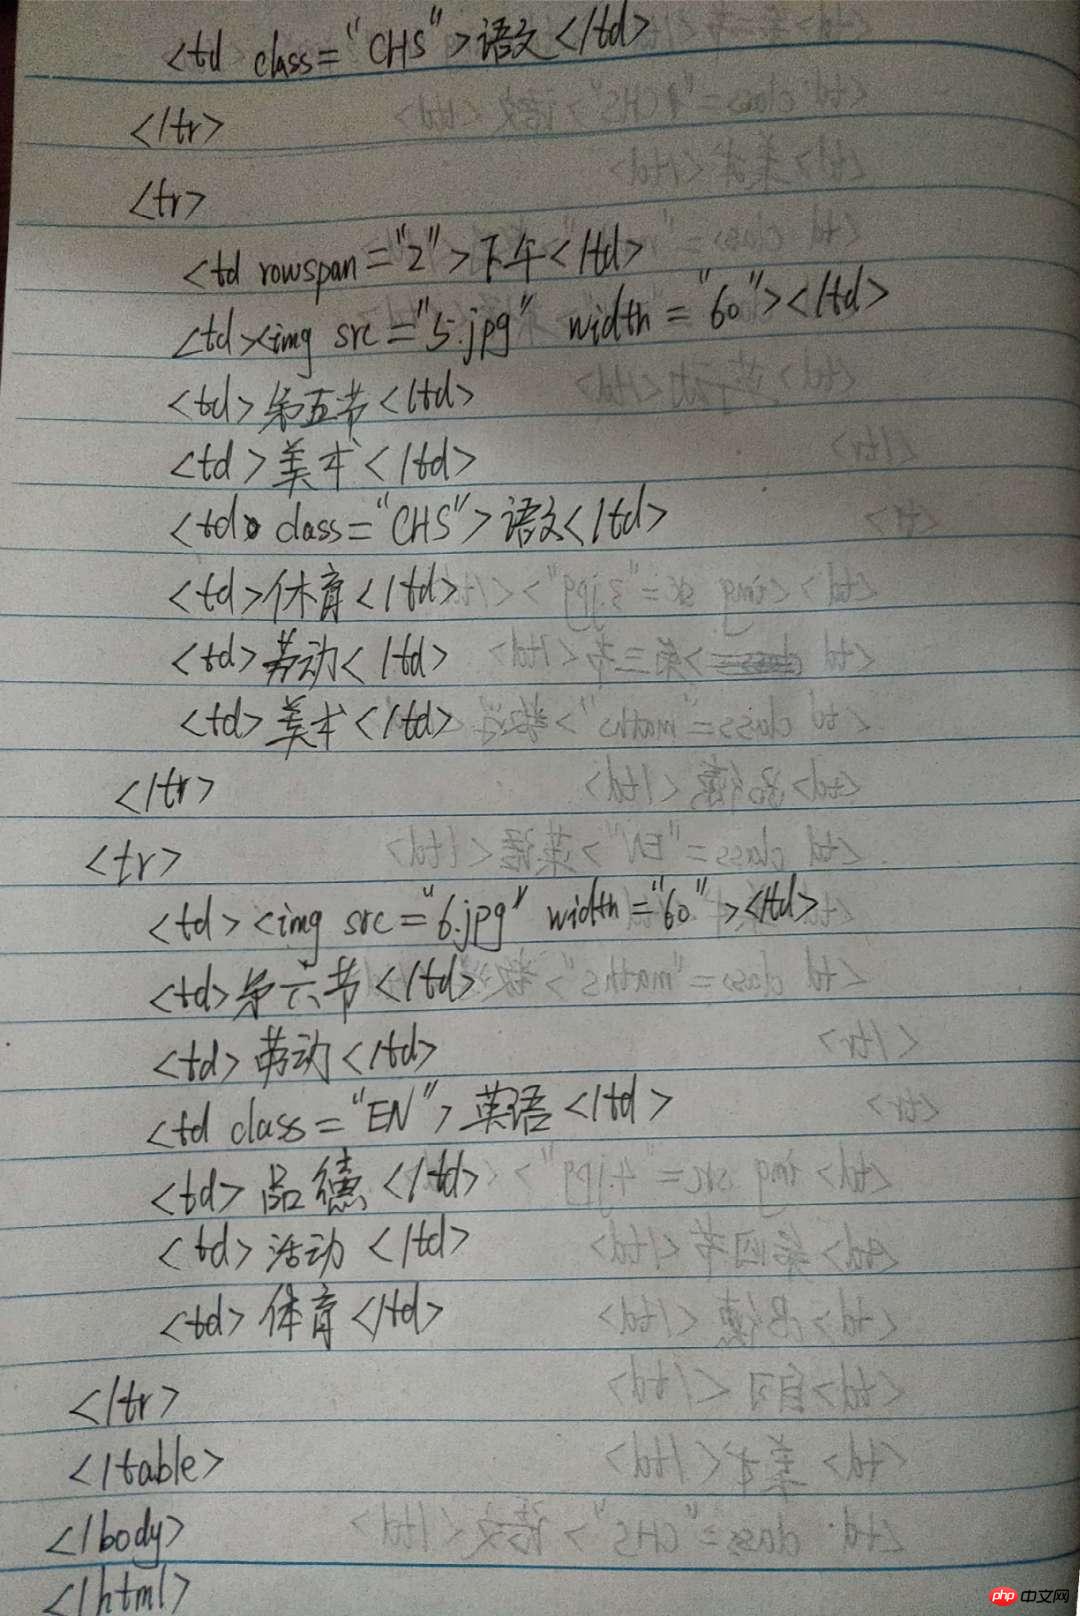 <td class="CHS">语文</td>
</tr>
<tr>
<td rowspan="2">下午</td>
<td><img src="5.jpg" width="60"></td>
<td>第五节</td>
<td>美术</td>
<td class="CHS">语文</td>
<td>体育</td>
<td>劳动</td>
<td>美术</td>
</tr>
<tr>
<td><img src="6.jpg" width="60"></td>
<td>第六节</td>
<td>劳动</td>
<td class="EN">英语</td>
<td>品德</td>
<td>活动</td>
<td>体育</td>
</tr>
</table>
</body>
</html>
php中文网